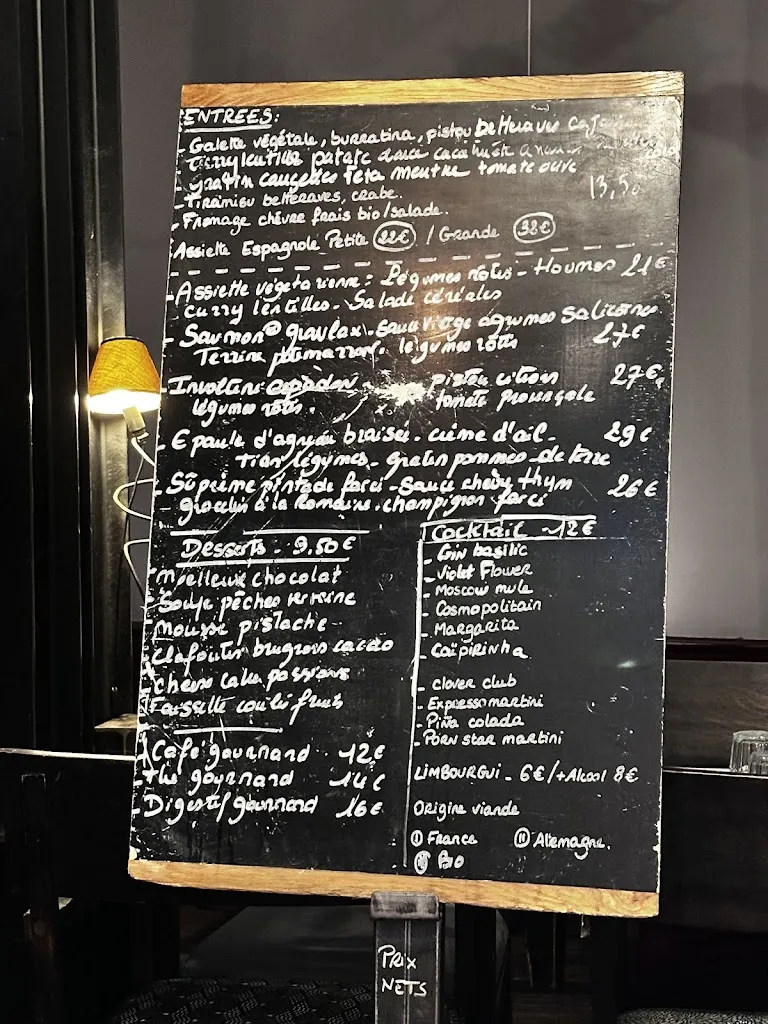 ENTREES:
- Galette végétale, burratina, pistou betteraves
curry lentilles patate douce cacahuète
- gratin courgettes feta menthe tomate olive
13,50
- Tiramisu betteraves, crabe.
- Fromage chèvre frais bio/salade.
Assiette Espagnole Petite 22€ / Grande 38€
- Assiette végétarienne : Légumes rôtis - Houmos 21€
curry lentilles - Salade céréales
- Saumon gravlax - sauce vierge agrumes salicornes
Terrine légumes rôtis 27€
- Involtini espadon pistou citron 27€
légumes rôtis. tomate provençale
- Epaule d'agneau braisée - crème d'ail - 29€
Tian légumes - Gratin pommes de terre
- Suprême pintade farci - Sauce thym 26€
- gnocchi à la Romaine - champignon farci
Desserts - 9.50€
- Moelleux chocolat
- Soupe pêches verveine
- Mousse pistache
- Clafoutis brugnons cacao
- cheese cake passion
- Faisselle coulis fruits
- Café gourmand 12€
- thé gourmand 14€
- Digestif gourmand 16€
Cocktail - 12€
- Gin basilic
- Violet Flower
- Moscow mule
- Cosmopolitain
- Margarita
- Caïpirinha
- clover club
- Expresso martini
- Piña colada
- Porn star martini
LIMBOURGUI - 6€/+Alcool 8€
Origine viande
① France ⑪ Allemagne.
Bio
PRIX
NETS